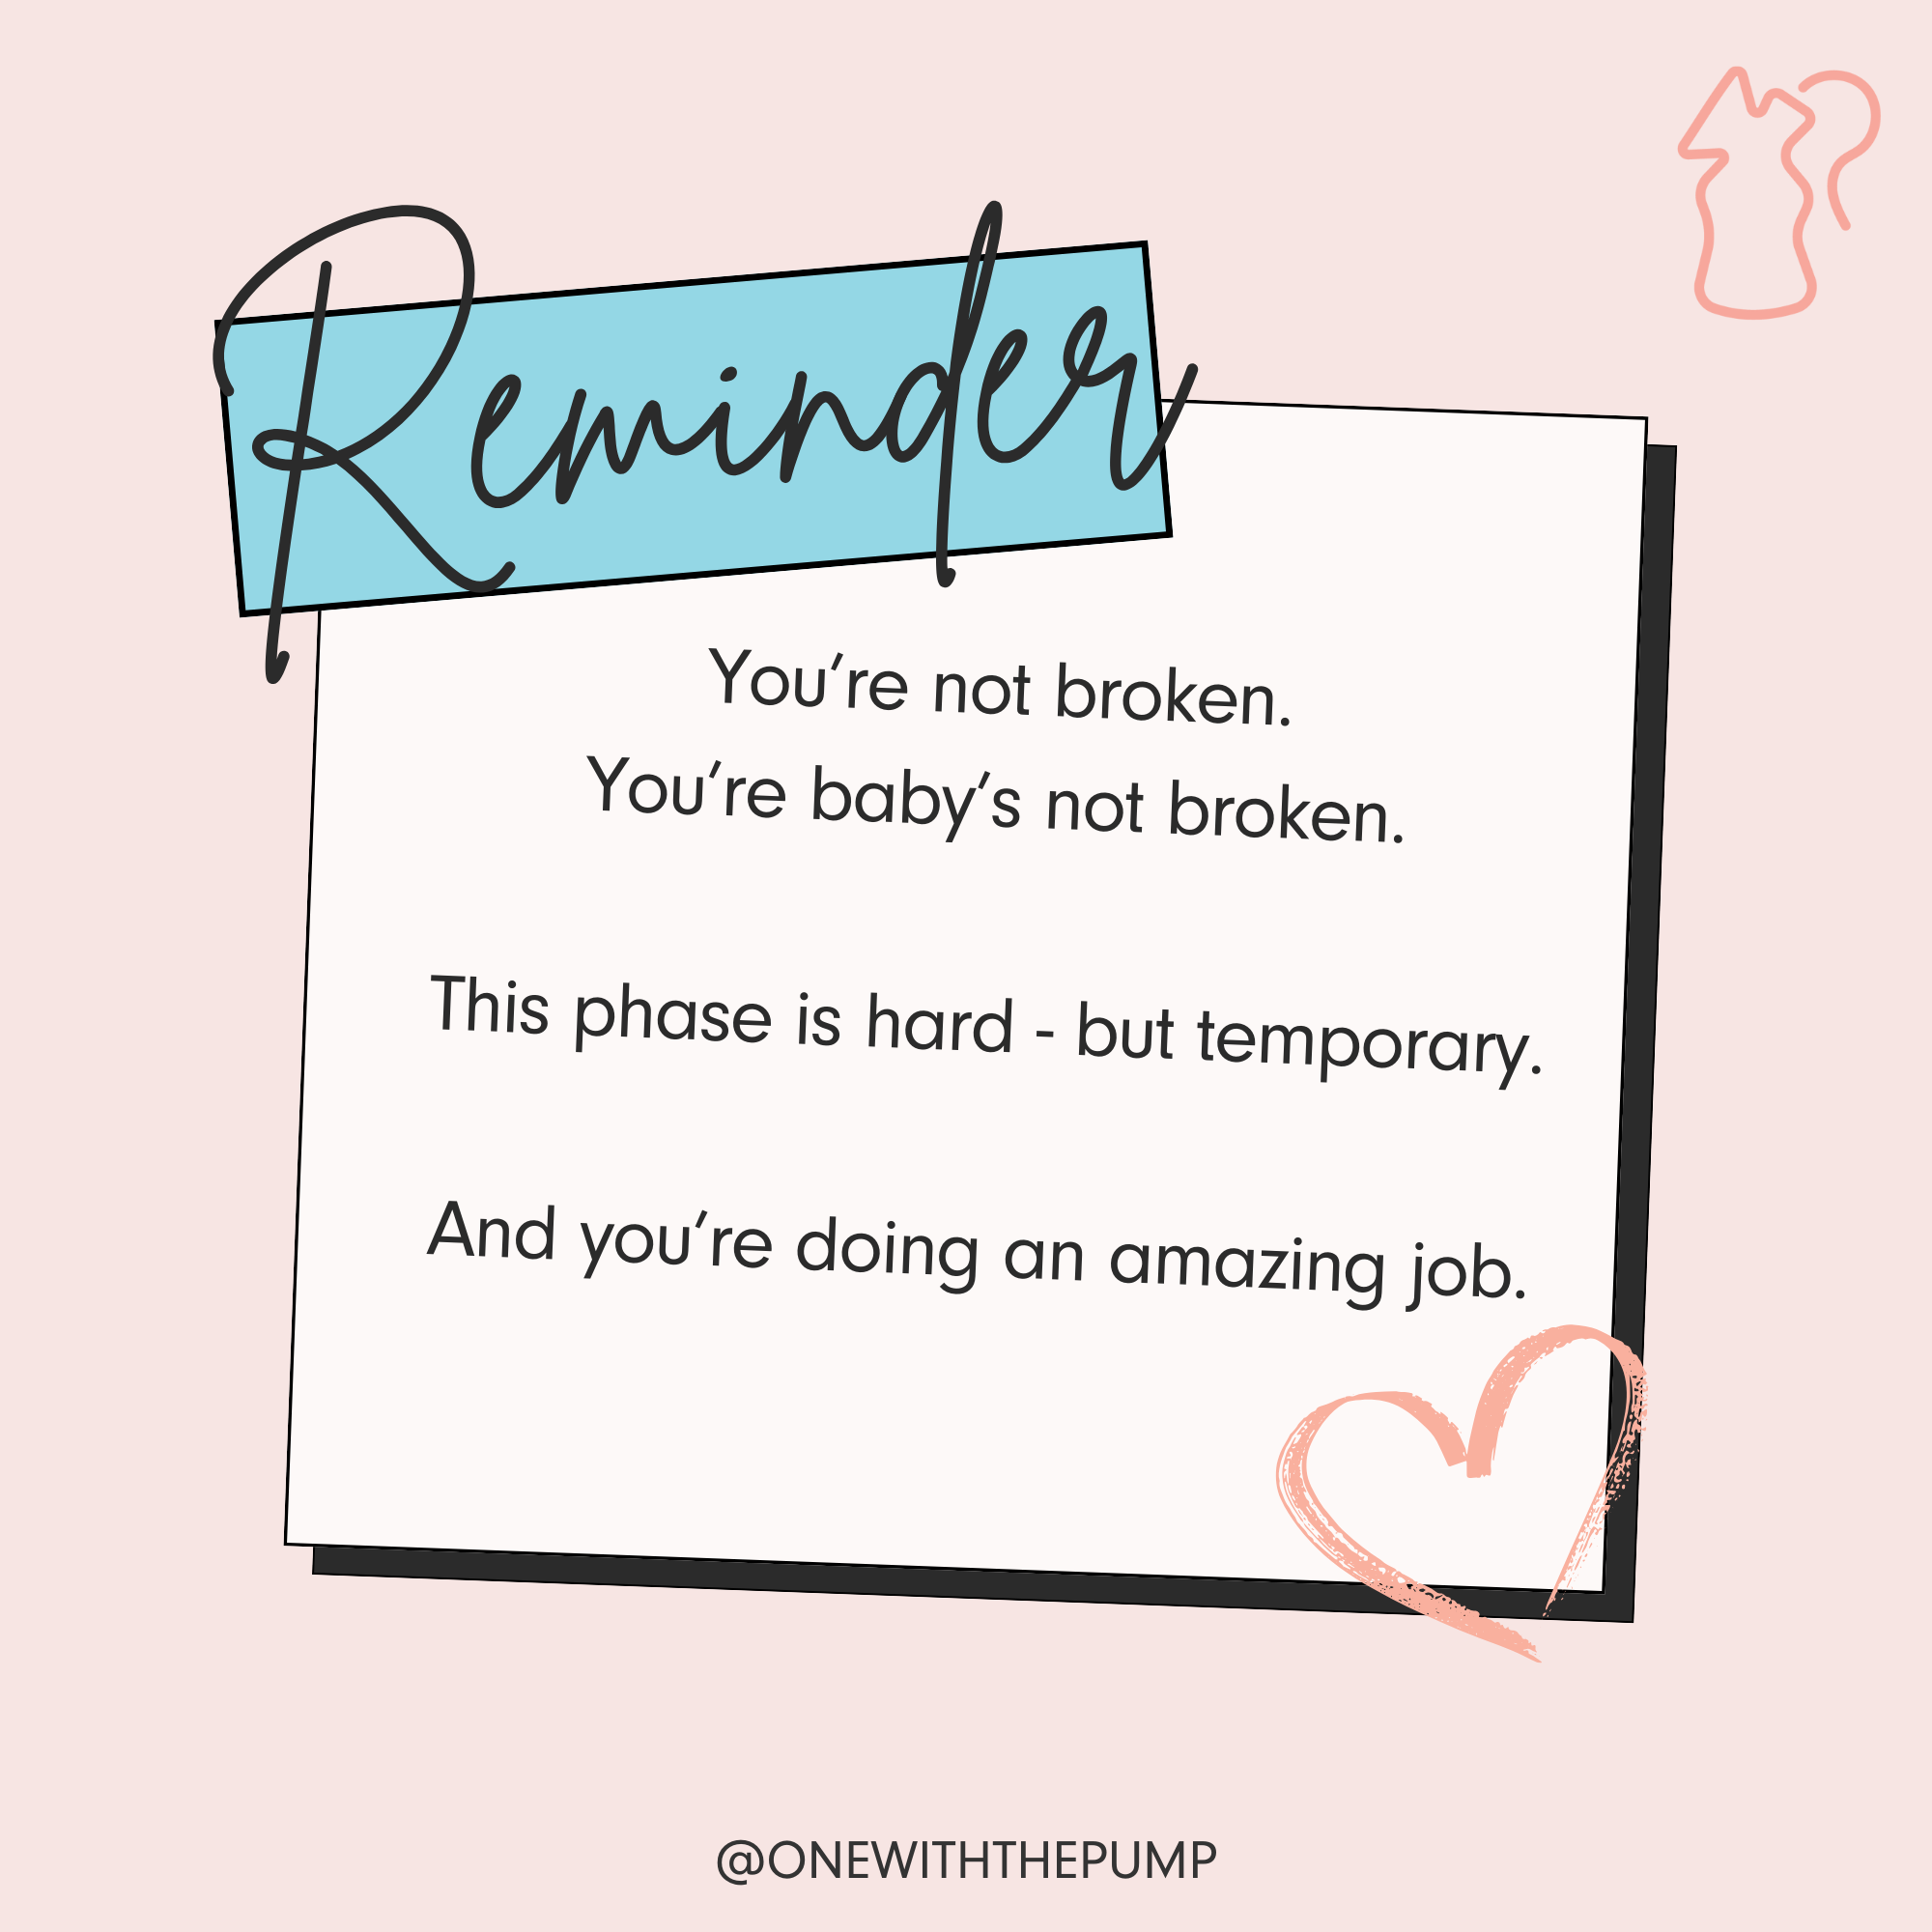 Reminder
You're not broken.
You're baby's not broken.
This phase is hard - but temporary.
And you're doing an amazing job.
@ONEWITHTHEPUMP